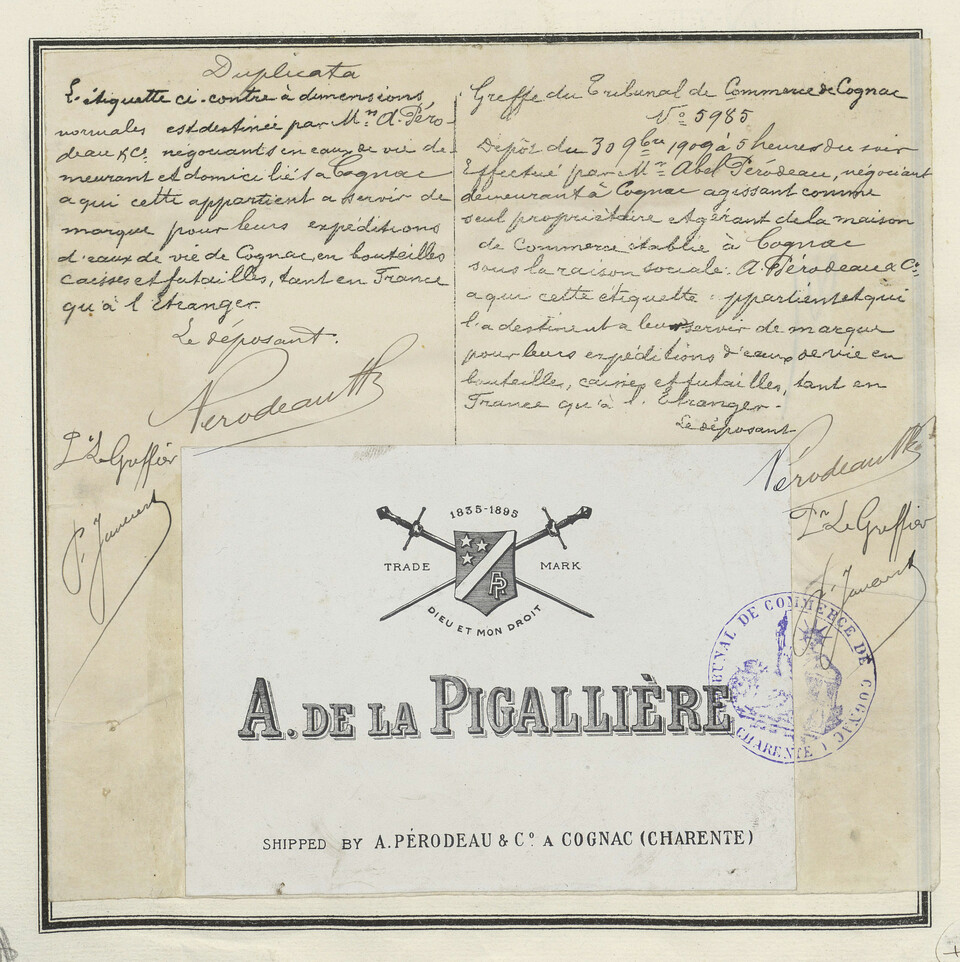 Duplicata
L'étiquette ci-contre à dimensions
normales est destinée par Mrs A. Péro-
deau & Cie négociants en eaux de vie de-
meurant et domiciliés à Cognac
a qui cette appartient a servir de
marque pour leurs expéditions
d'eaux de vie de Cognac, en bouteilles
caisses et futailles, tant en France
qu'à l'Etranger.
Le déposant.
Pérodeau
Pr Le Greffier
Greffe du Tribunal de Commerce de Cognac
No 5985
Dépôt du 30 9bre 1909 à 5 heures du soir
Effectué par Mr Abel Pérodeau, négociant
demeurant à Cognac agissant comme
seul propriétaire et gérant de la maison
de Commerce établie à Cognac
sous la raison sociale: A. Pérodeau & Co,
a qui cette étiquette appartient et qui
l'a destinent a leur servir de marque
pour leurs expéditions d'eaux de vie en
bouteilles, caisses et futailles, tant en
France qu'à l'Etranger-
Le déposant
Pérodeau
Pr Le Greffier
1835-1895
TRADE MARK
PR
DIEU ET MON DROIT
A. DE LA PIGALLIÈRE
SHIPPED BY A. PÉRODEAU & Co A COGNAC (CHARENTE)
TRIBUNAL DE COMMERCE DE COGNAC
(CHARENTE)